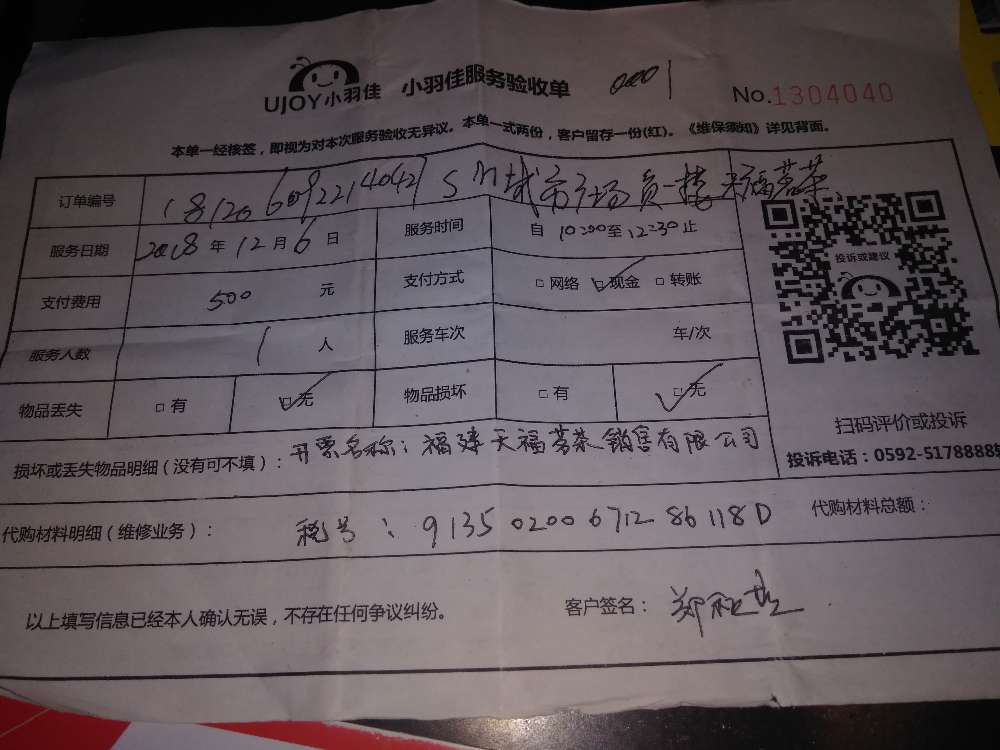 UJOY小羽佳 小羽佳服务验收单 0001 No.1304040
本单一经核签，即视为对本次服务验收无异议。本单一式两份，客户留存一份(红)。《维保须知》详见背面。
订单编号 SM城市广场 一楼天福茗茶
服务日期 2018年12月6日 服务时间 自10:00至12:30止
支付费用 500元 支付方式 □网络 ☑现金 □转账
服务人数 1人 服务车次 车/次
物品丢失 □有 ☑无 物品损坏 □有 ☑无
投诉或建议
扫码评价或投诉
投诉电话：0592-5178888
损坏或丢失物品明细（没有可不填）：开票名称：福建天福茗茶销售有限公司
代购材料明细（维修业务）：税号：91350200671286118D 代购材料总额：
以上填写信息已经本人确认无误，不存在任何争议纠纷。 客户签名：